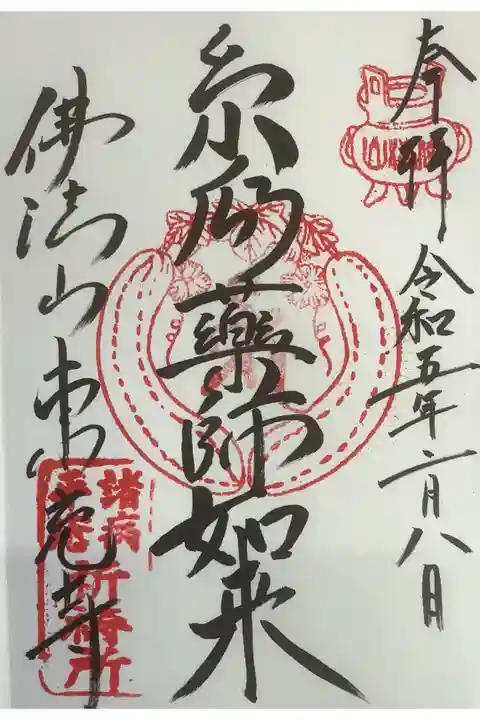 奉拝 令和五年二月八日
糸瓜藥師如来
佛法山東充寺
諸病
祈祷所